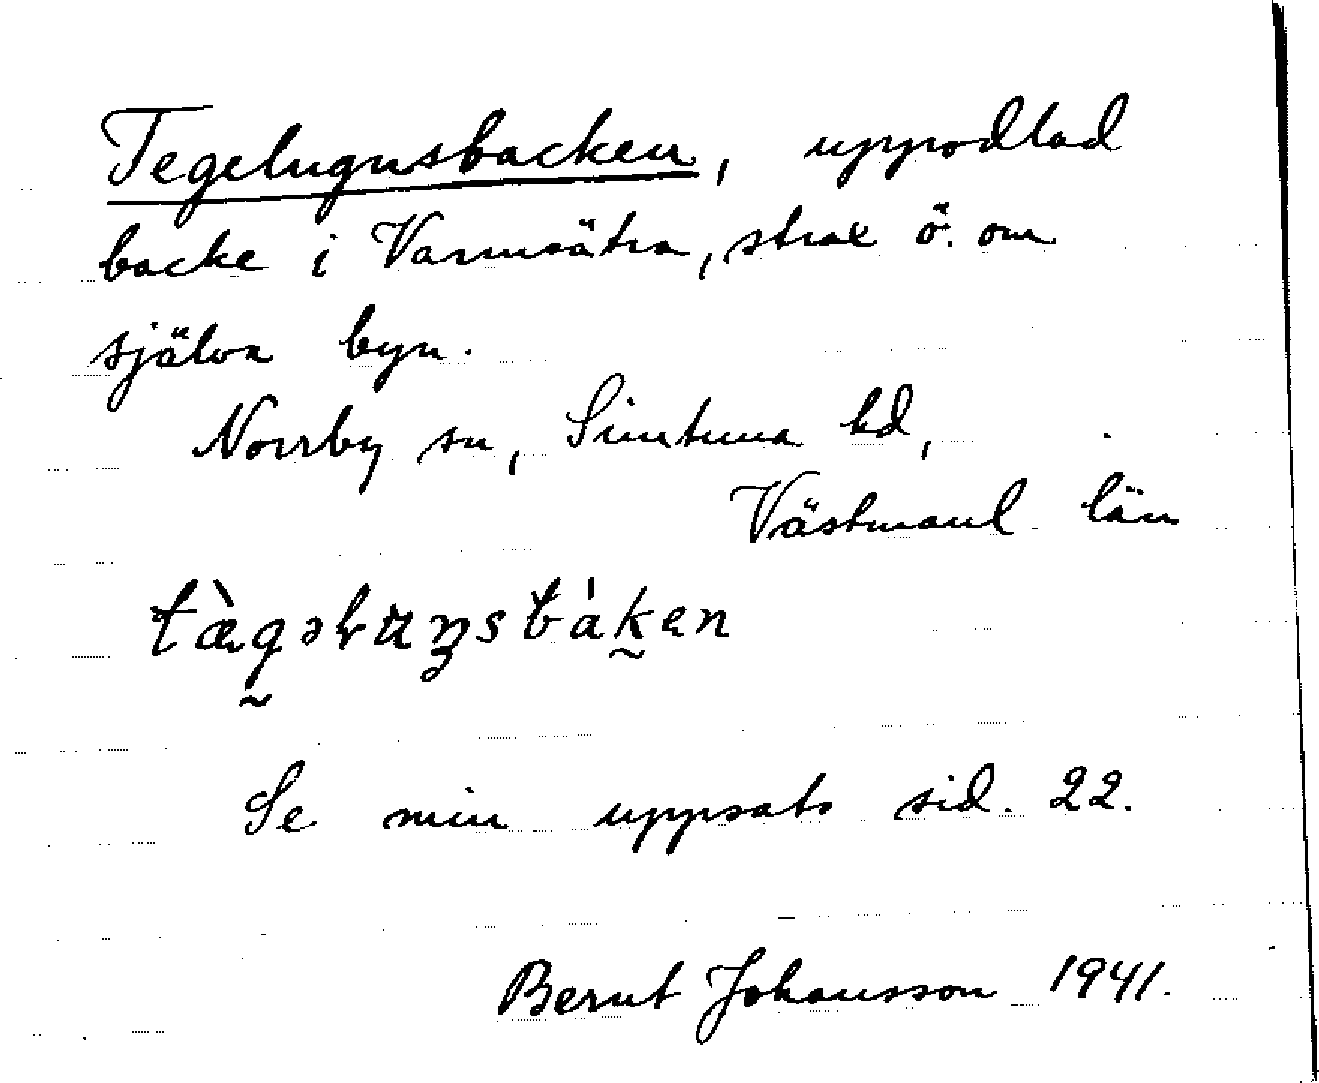 Tegelugnsbacken, uppodlad
backe i Varmsätra, strax ö. om
själva byn.
Norrby sn, Simtuna hd,
Västmanl. län
tæ̀gəlɯŋsbáken
Se min uppsats sid. 22.
Bernt Johansson 1941.